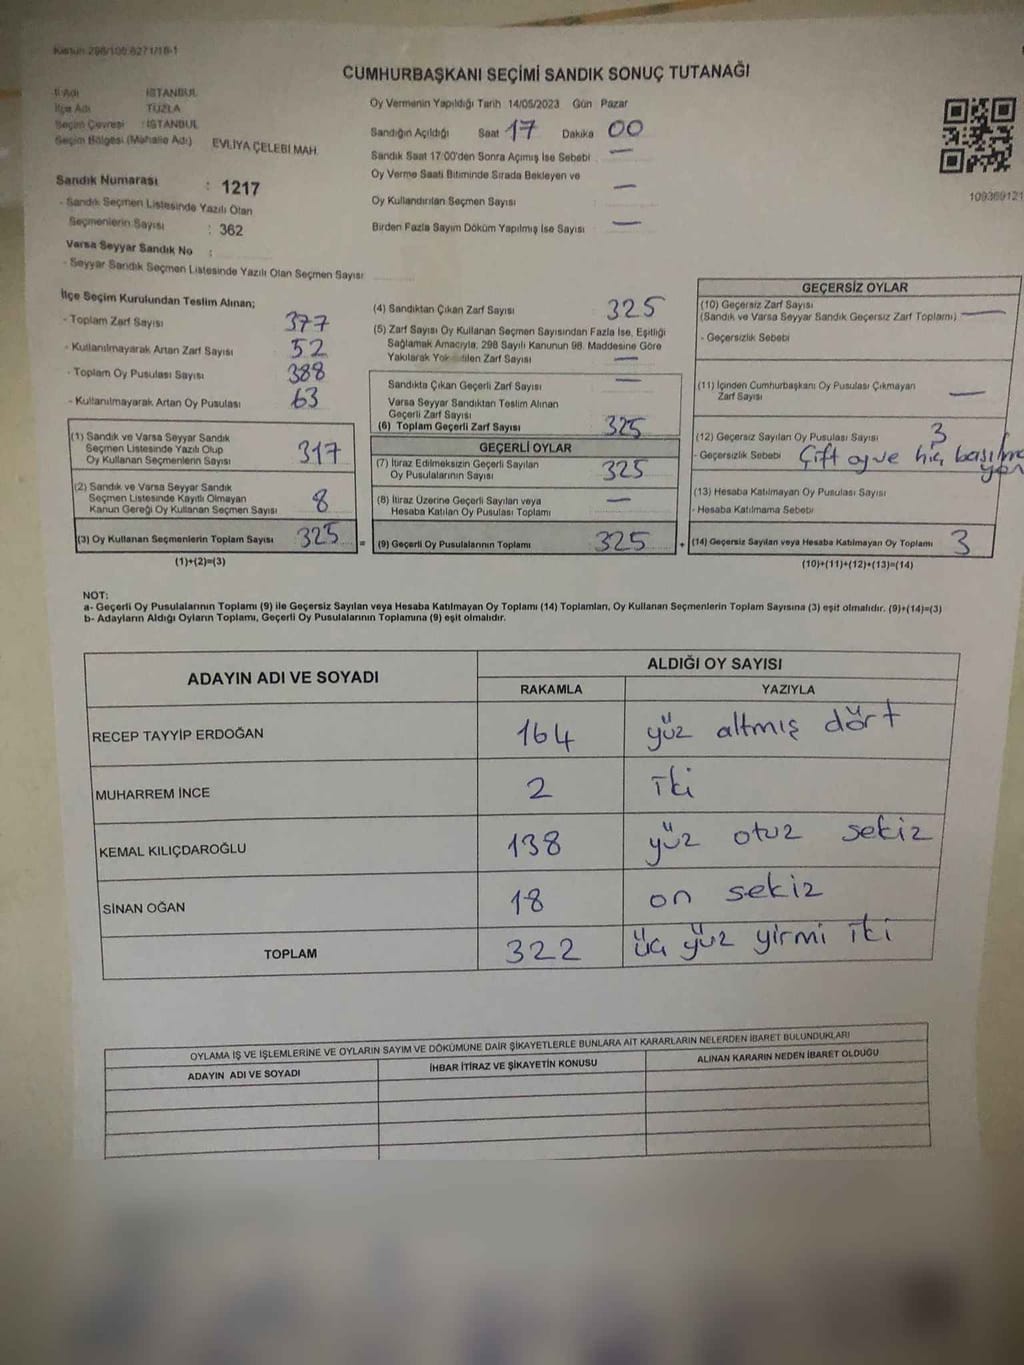 Kanun 298/106 6271/18-1
CUMHURBAŞKANI SEÇİMİ SANDIK SONUÇ TUTANAĞI
İl Adı İSTANBUL
İlçe Adı TUZLA
Seçim Çevresi : İSTANBUL
Seçim Bölgesi (Mahalle Adı) EVLİYA ÇELEBİ MAH.
Sandık Numarası : 1217
- Sandık Seçmen Listesinde Yazılı Olan
Seçmenlerin Sayısı : 362
Varsa Seyyar Sandık No :
- Seyyar Sandık Seçmen Listesinde Yazılı Olan Seçmen Sayısı
Oy Vermenin Yapıldığı Tarih 14/05/2023 Gün Pazar
Sandığın Açıldığı Saat 17 Dakika 00
Sandık Saat 17:00'den Sonra Açımış İse Sebebi —
Oy Verme Saati Bitiminde Sırada Bekleyen ve
Oy Kullandırılan Seçmen Sayısı —
Birden Fazla Sayım Döküm Yapılmış İse Sayısı —
109369121
İlçe Seçim Kurulundan Teslim Alınan;
- Toplam Zarf Sayısı 377
- Kullanılmayarak Artan Zarf Sayısı 52
- Toplam Oy Pusulası Sayısı 388
- Kullanılmayarak Artan Oy Pusulası 63
(1) Sandık ve Varsa Seyyar Sandık
Seçmen Listesinde Yazılı Olup
Oy Kullanan Seçmenlerin Sayısı 317
(2) Sandık ve Varsa Seyyar Sandık
Seçmen Listesinde Kayıtlı Olmayan
Kanun Gereği Oy Kullanan Seçmen Sayısı 8
(3) Oy Kullanan Seçmenlerin Toplam Sayısı 325 =
(1)+(2)=(3)
(4) Sandıktan Çıkan Zarf Sayısı 325
(5) Zarf Sayısı Oy Kullanan Seçmen Sayısından Fazla İse, Eşitliği
Sağlamak Amacıyla, 298 Sayılı Kanunun 98. Maddesine Göre
Yakılarak Yok Edilen Zarf Sayısı —
Sandıkta Çıkan Geçerli Zarf Sayısı —
Varsa Seyyar Sandıktan Teslim Alınan
Geçerli Zarf Sayısı
(6) Toplam Geçerli Zarf Sayısı 325
GEÇERLİ OYLAR
(7) İtiraz Edilmeksizin Geçerli Sayılan
Oy Pusulalarının Sayısı 325
(8) İtiraz Üzerine Geçerli Sayılan veya
Hesaba Katılan Oy Pusulası Toplamı —
(9) Geçerli Oy Pusulalarının Toplamı 325 +
GEÇERSİZ OYLAR
(10) Geçersiz Zarf Sayısı
(Sandık ve Varsa Seyyar Sandık Geçersiz Zarf Toplamı) —
- Geçersizlik Sebebi
(11) İçinden Cumhurbaşkanı Oy Pusulası Çıkmayan
Zarf Sayısı —
(12) Geçersiz Sayılan Oy Pusulası Sayısı 3
- Geçersizlik Sebebi Çift oy ve hiç
(13) Hesaba Katılmayan Oy Pusulası Sayısı
- Hesaba Katılmama Sebebi
(14) Geçersiz Sayılan veya Hesaba Katılmayan Oy Toplamı 3
(10)+(11)+(12)+(13)=(14)
NOT:
a- Geçerli Oy Pusulalarının Toplamı (9) ile Geçersiz Sayılan veya Hesaba Katılmayan Oy Toplamı (14) Toplamları, Oy Kullanan Seçmenlerin Toplam Sayısına (3) eşit olmalıdır. (9)+(14)=(3)
b- Adayların Aldığı Oyların Toplamı, Geçerli Oy Pusulalarının Toplamına (9) eşit olmalıdır.
ADAYIN ADI VE SOYADI ALDIĞI OY SAYISI
RAKAMLA YAZIYLA
RECEP TAYYİP ERDOĞAN 164 yüz altmış dört
MUHARREM İNCE 2 iki
KEMAL KILIÇDAROĞLU 138 yüz otuz sekiz
SİNAN OĞAN 18 on sekiz
TOPLAM 322 üç yüz yirmi iki
OYLAMA İŞ VE İŞLEMLERİNE VE OYLARIN SAYIM VE DÖKÜMÜNE DAİR ŞİKAYETLERLE BUNLARA AİT KARARLARIN NELERDEN İBARET BULUNDUKLARI
ADAYIN ADI VE SOYADI İHBAR İTİRAZ VE ŞİKAYETİN KONUSU ALINAN KARARIN NEDEN İBARET OLDUĞU